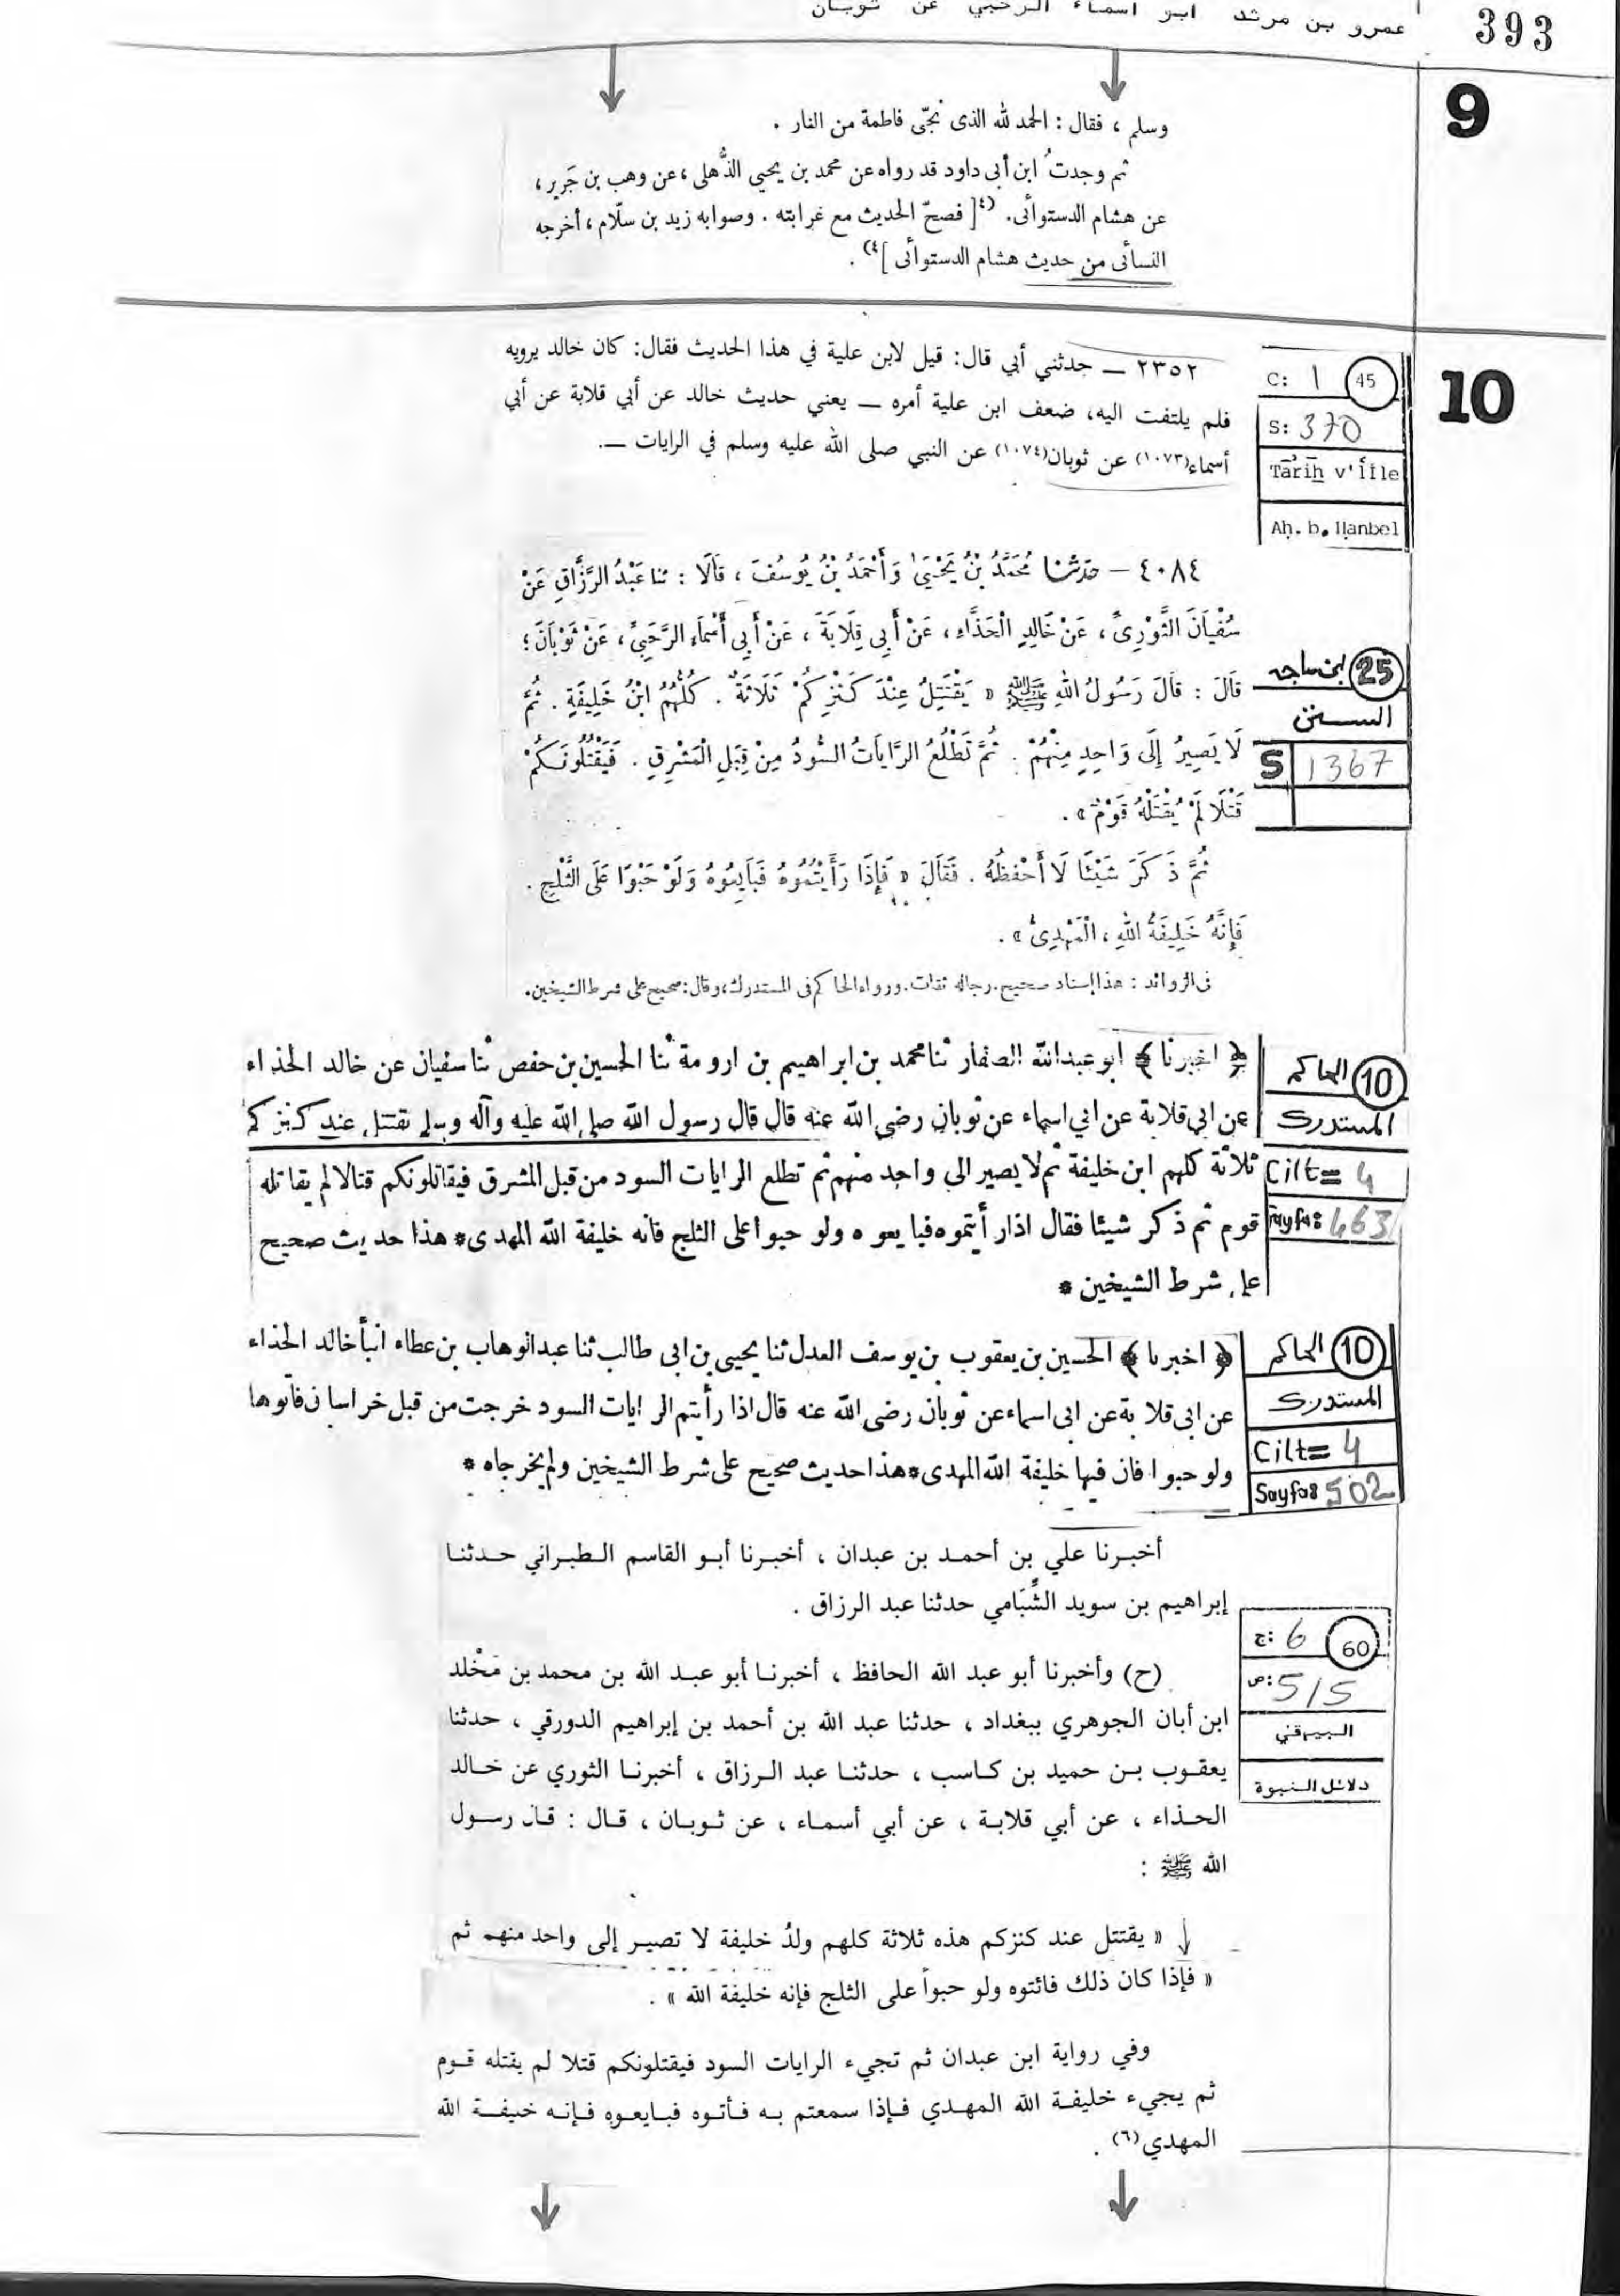 393
عمرو بن مرثد ابو اسماء الرحبي عن ثوبان
9
وسلم ، فقال : الحمد لله الذى نجّى فاطمة من النار .
ثم وجدتُ ابن أبى داود قد رواه عن محمد بن يحيى الذُّهلى ، عن وهب بن جَرير ،
عن هشام الدستوائى. (٤[ فصحّ الحديث مع غرابته . وصوابه زيد بن سلّام ، أخرجه
النسائى من حديث هشام الدستوائى ]٤) .
10
C: 1 45
S: 370
Tārīḫ v'İlle
Aḥ. b. Ḥanbel
٢٣٥٢ ــ حدثني أبي قال: قيل لابن علية في هذا الحديث فقال: كان خالد يرويه
فلم يلتفت اليه، ضعف ابن علية أمره ــ يعني حديث خالد عن أبي قلابة عن أبي
أسماء(١٠٧٣) عن ثوبان(١٠٧٤) عن النبي صلى الله عليه وسلم في الرايات ــ.
25 ابن ماجه
السنن
S 1367
٤٠٨٤ – حَدَّثَنَا مُحَمَّدُ بْنُ يَحْيَىٰ وَأَحْمَدُ بْنُ يُوسُفَ ، قَالَا : ثنا عَبْدُ الرَّزَّاقِ عَنْ
سُفْيَانَ الثَّوْرِىِّ ، عَنْ خَالِدٍ الْحَذَّاءِ ، عَنْ أَبِى قِلَابَةَ ، عَنْ أَبِى أَسْمَاءَ الرَّحَبِىِّ ، عَنْ ثَوْبَانَ ؛
قَالَ : قَالَ رَسُولُ اللهِ ﷺ « يَقْتَتِلُ عِنْدَ كَنْزِكُمْ ثَلَاثَةٌ . كُلُّهُمُ ابْنُ خَلِيفَةٍ . ثُمَّ
لَا يَصِيرُ إِلَى وَاحِدٍ مِنْهُمْ . ثُمَّ تَطْلُعُ الرَّايَاتُ السُّودُ مِنْ قِبَلِ الْمَشْرِقِ . فَيَقْتُلُونَكُمْ
قَتْلًا لَمْ يُقْتَلْهُ قَوْمٌ » .
ثُمَّ ذَكَرَ شَيْئًا لَا أَحْفَظُهُ . فَقَالَ « فَإِذَا رَأَيْتُمُوهُ فَبَايِعُوهُ وَلَوْ حَبْوًا عَلَى الثَّلْجِ .
فَإِنَّهُ خَلِيفَةُ اللهِ ، الْمَهْدِىُّ » .
فى الزوائد : هذا إسناد صحيح. رجاله ثقات. ورواه الحاكم فى المستدرك، وقال: صحيح على شرط الشيخين.
10 الحاكم
المستدرك
Cilt= 4
Sayfa: 463
﴿ اخبرنا ﴾ ابو عبدالله الصفار ثنا محمد بن ابراهيم بن ارومة ثنا الحسين بن حفص ثنا سفيان عن خالد الحذاء
عن ابى قلابة عن ابى اسماء عن ثوبان رضى الله عنه قال قال رسول الله صلى الله عليه وآله وسلم يقتتل عند كنزكم
ثلاثة كلهم ابن خليفة ثم لا يصير الى واحد منهم ثم تطلع الرايات السود من قبل المشرق فيقاتلونكم قتالا لم يقاتله
قوم ثم ذكر شيئا فقال اذا رأيتموه فبايعوه ولو حبوا على الثلج فانه خليفة الله المهدى * هذا حديث صحيح
على شرط الشيخين *
10 الحاكم
المستدرك
Cilt= 4
Sayfa: 502
﴿ اخبرنا ﴾ الحسين بن يعقوب بن يوسف العدل ثنا يحيى بن ابى طالب ثنا عبدالوهاب بن عطاء انبأ خالد الحذاء
عن ابى قلابة عن ابى اسماء عن ثوبان رضى الله عنه قال اذا رأيتم الرايات السود خرجت من قبل خراسان فأتوها
ولو حبوا فان فيها خليفة الله المهدى * هذا حديث صحيح على شرط الشيخين ولم يخرجاه *
أخبرنا علي بن أحمد بن عبدان ، أخبرنا أبو القاسم الطبراني حدثنا
إبراهيم بن سويد الشِّبَامي حدثنا عبد الرزاق .
ج: 6 60
ص: 515
البيهقي
دلائل النبوة
(ح) وأخبرنا أبو عبد الله الحافظ ، أخبرنا أبو عبد الله بن محمد بن مَخْلد
ابن أبان الجوهري ببغداد ، حدثنا عبد الله بن أحمد بن إبراهيم الدورقي ، حدثنا
يعقوب بن حميد بن كاسب ، حدثنا عبد الرزاق ، أخبرنا الثوري عن خالد
الحذاء ، عن أبي قلابة ، عن أبي أسماء ، عن ثوبان ، قال : قال رسول
الله ﷺ :
« يقتتل عند كنزكم هذه ثلاثة كلهم ولدُ خليفة لا تصير إلى واحد منهم ثم
« فإذا كان ذلك فائتوه ولو حبواً على الثلج فإنه خليفة الله » .
وفي رواية ابن عبدان ثم تجيء الرايات السود فيقتلونكم قتلا لم يقتله قوم
ثم يجيء خليفة الله المهدي فإذا سمعتم به فأتوه فبايعوه فإنه خليفة الله
المهدي(٦) .